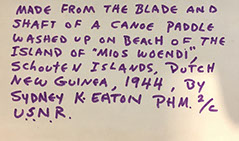 MADE FROM THE BLADE AND
SHAFT OF A CANOE PADDLE
WASHED UP ON BEACH OF THE
ISLAND OF "MIOS WOENDI",
SCHOUTEN ISLANDS, DUTCH
NEW GUINEA, 1944, BY
SYDNEY K EATON PHM. 2/C
U.S.N.R.